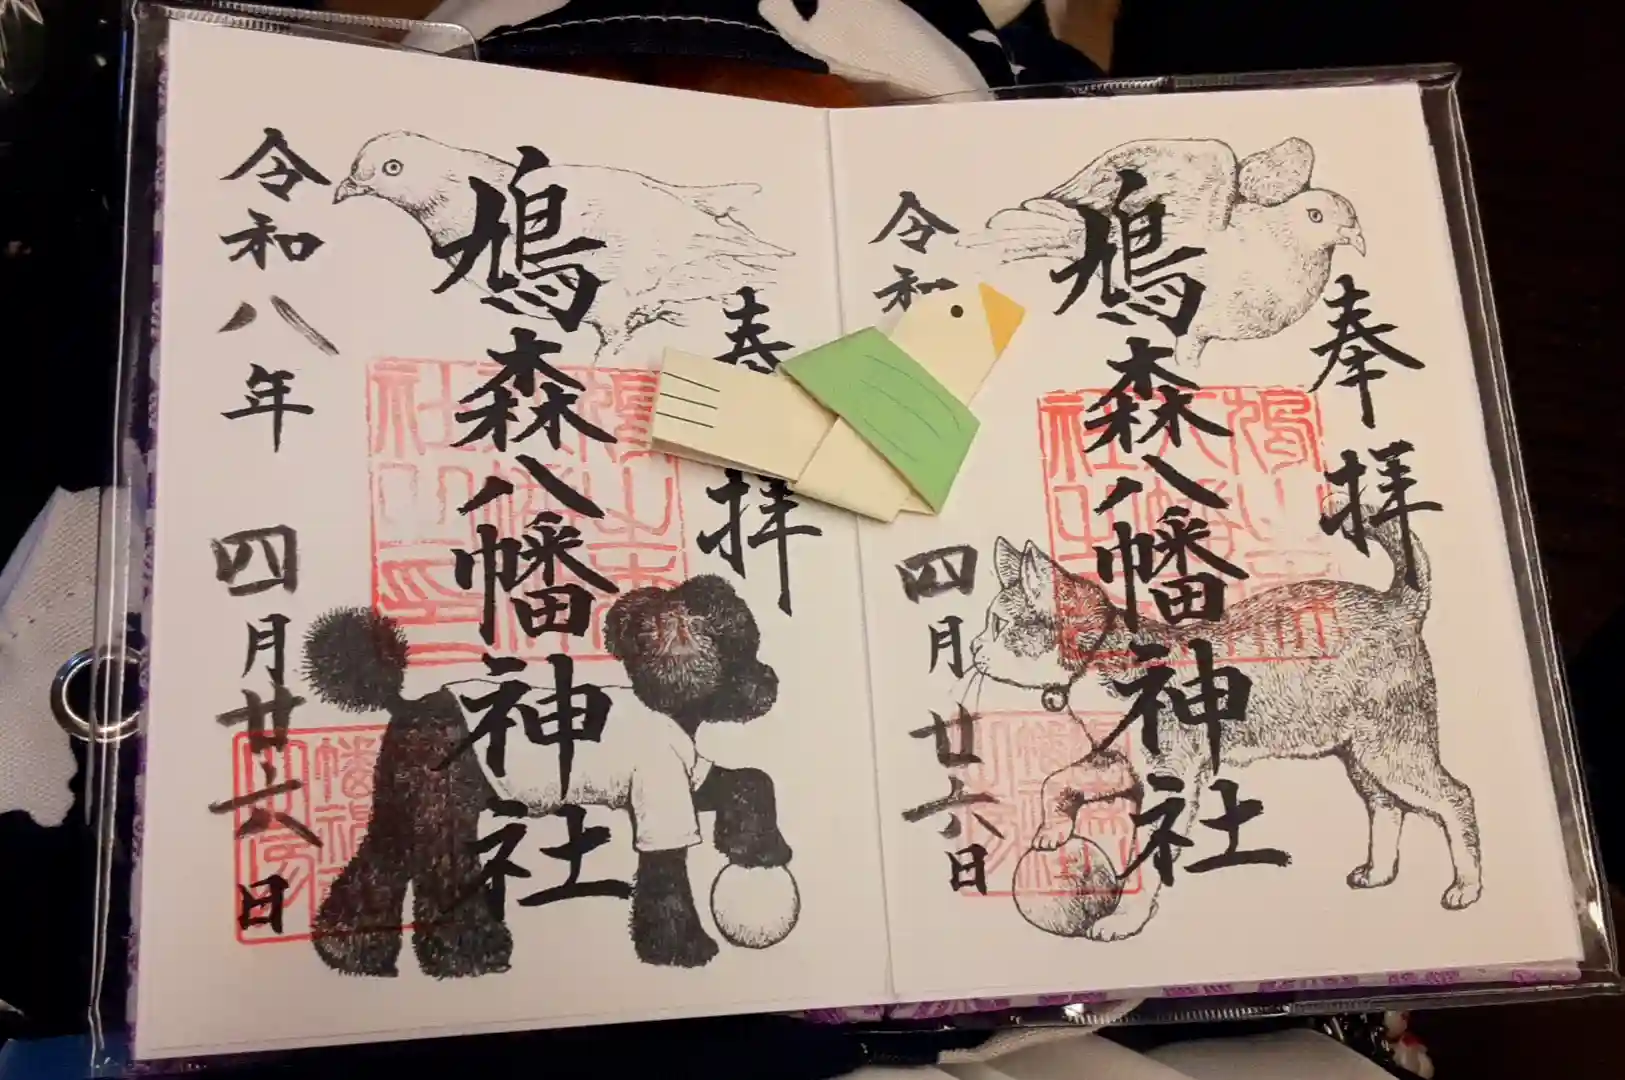 奉拝
鳩森八幡神社
令和
四月廿六日
奉拝
鳩森八幡神社
令和八年
四月廿六日